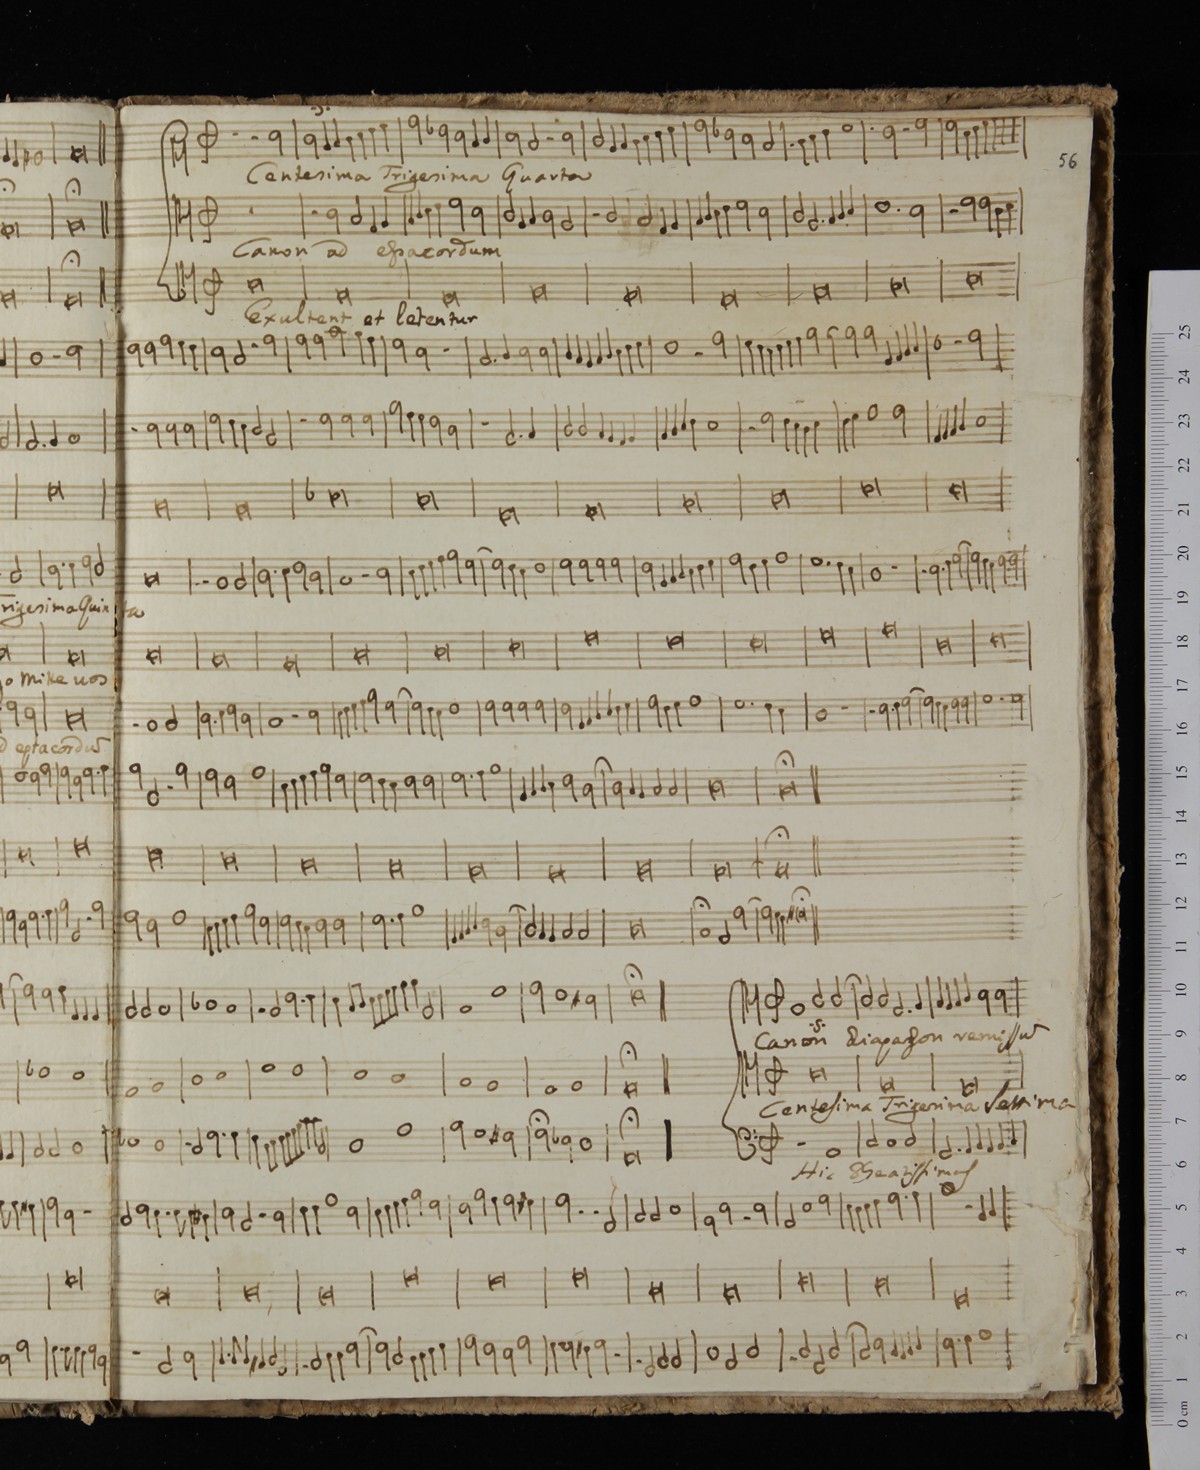 56
Centesima Trigesima Quarta
Canon ad
Exultent et letentur
Trigesima Quinta
o mike uos
d eptacordū
Canon Diapason remissū
Centesima Trigesima
25
24
23
22
21
20
19
18
17
16
15
14
13
12
11
10
9
8
7
6
5
4
3
2
1
0 cm